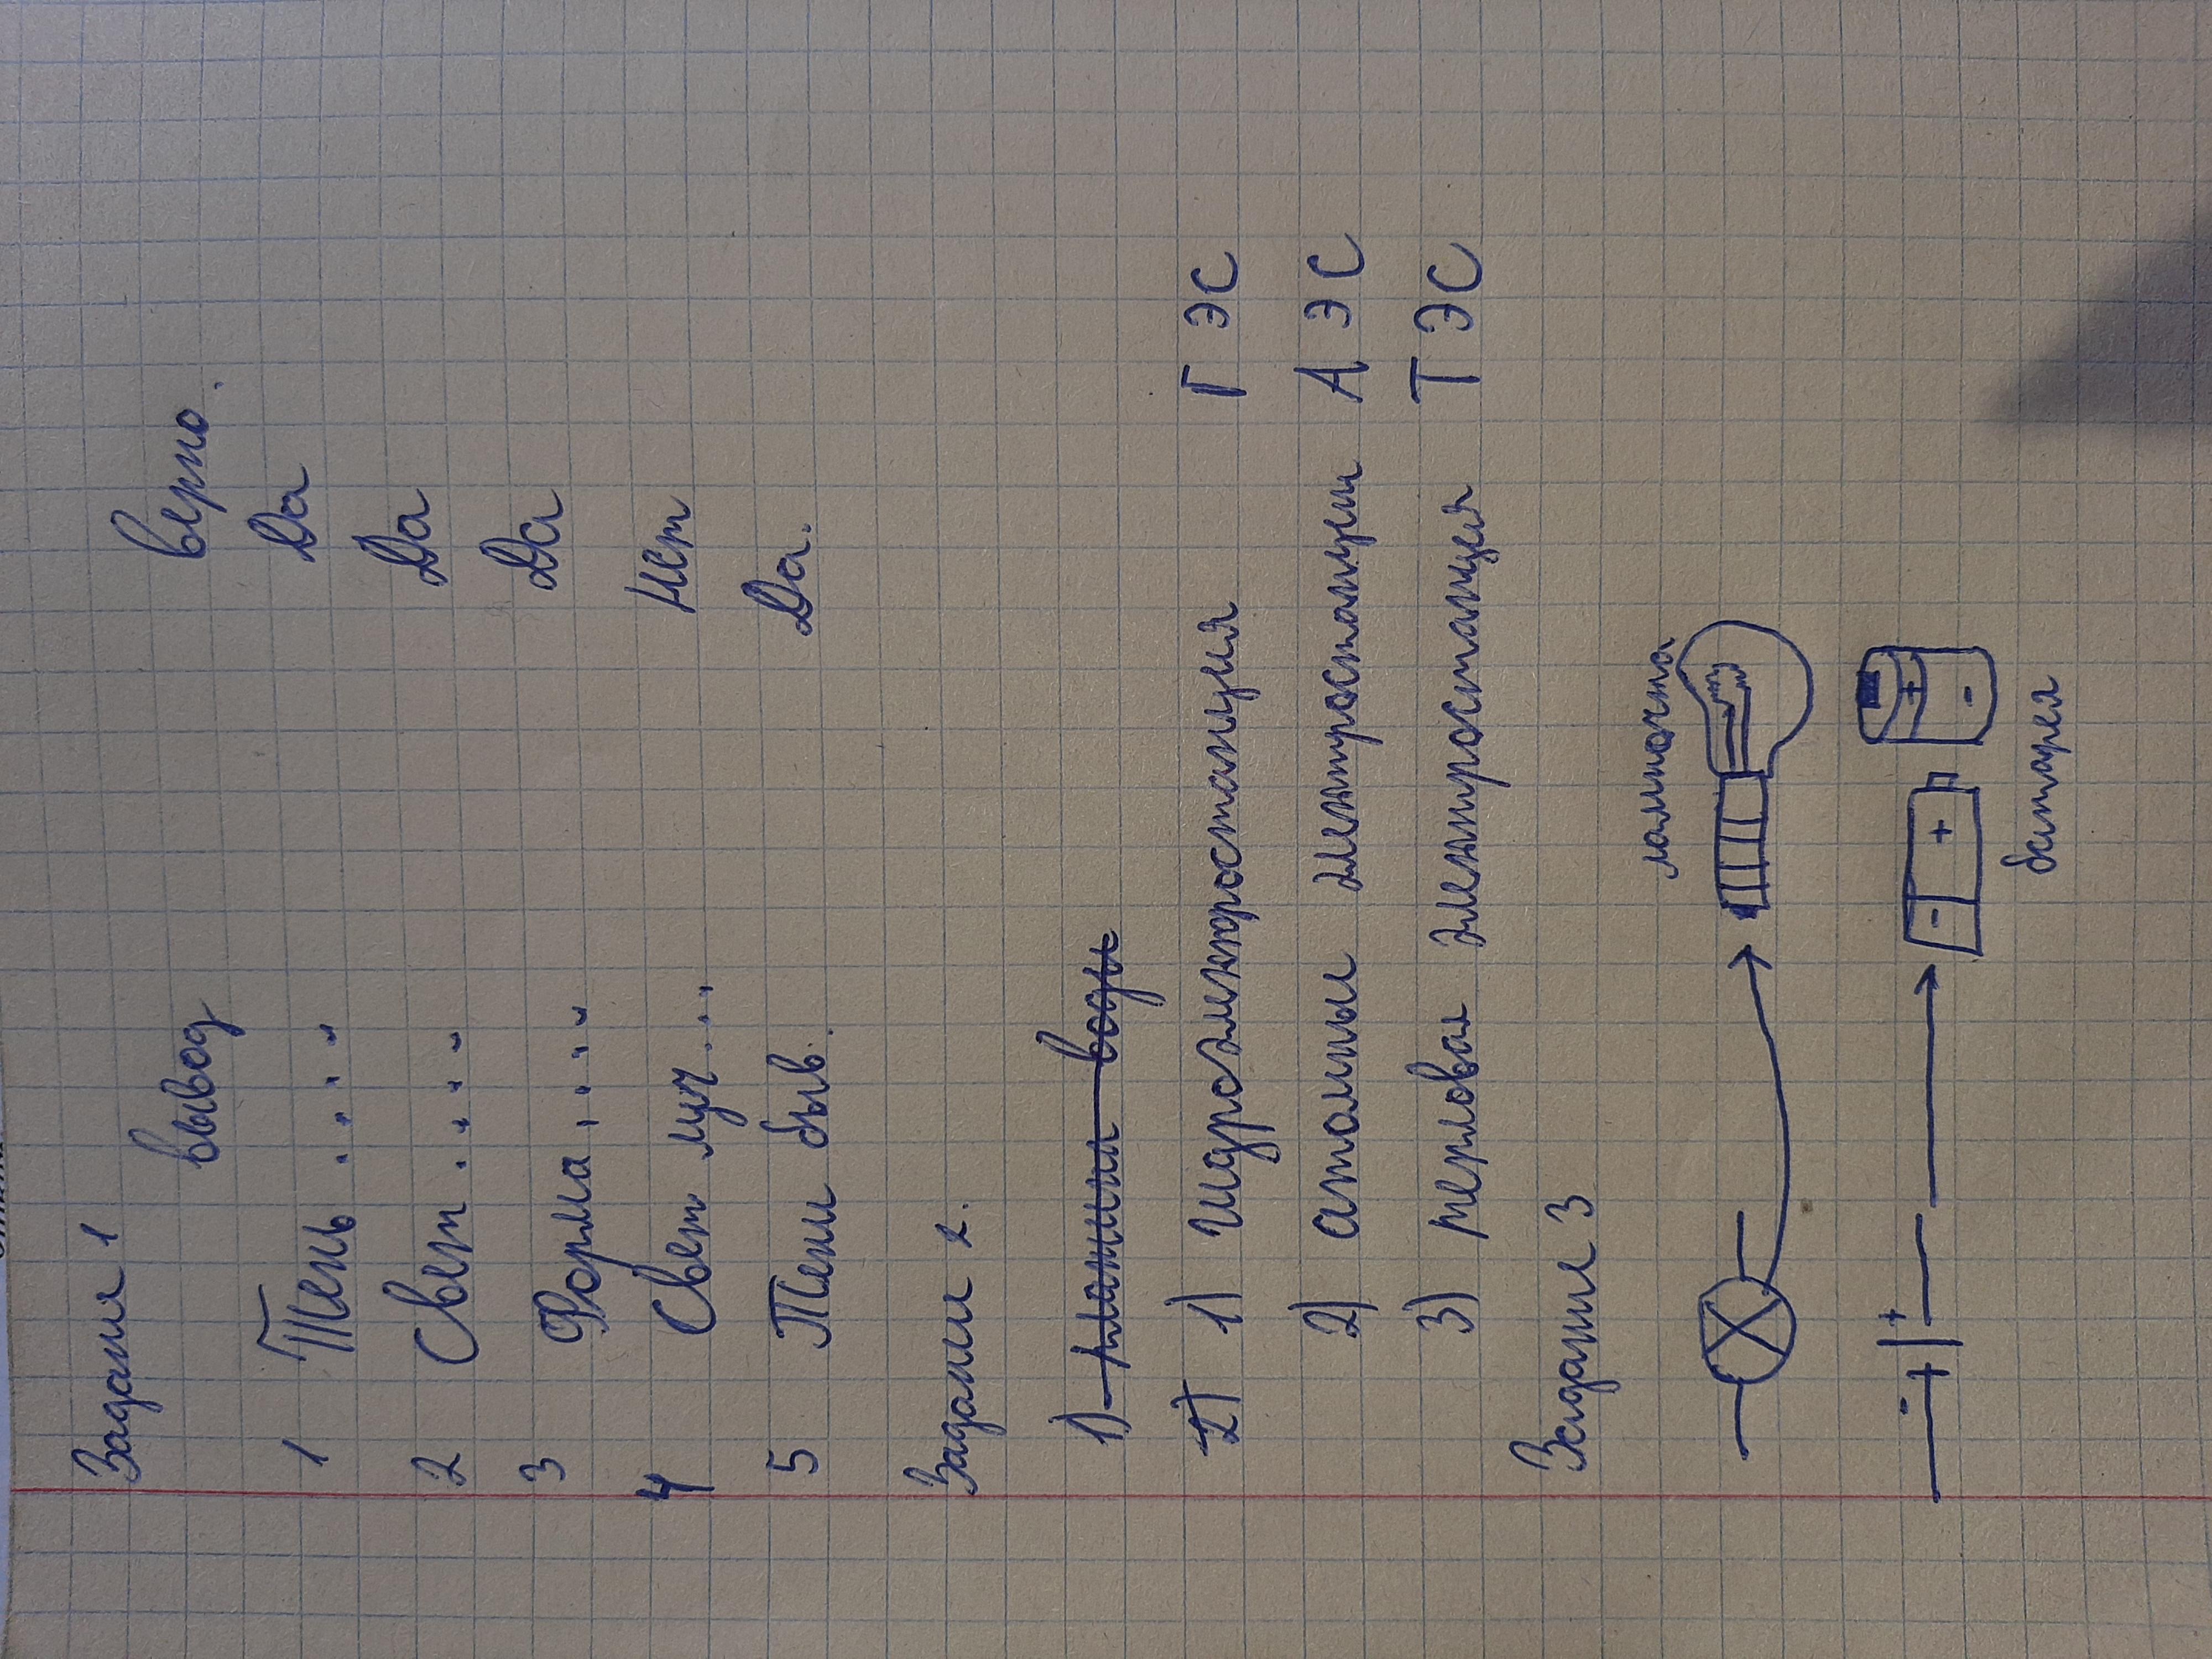 Задание 1
вывод верно.
1 Тень . . . . Да
2 Свет . . . . Да
3 Форма . . . . Да
4 Свет луч . . . Нет
5 Тени быв. Да.
Задание 2.
1) воды
2) 1) гидроэлектростанция ГЭС
2) атомные электростанции АЭС
3) тепловая электростанция ТЭС
Задание 3
лампочка
- +
- +
+ -
батарея